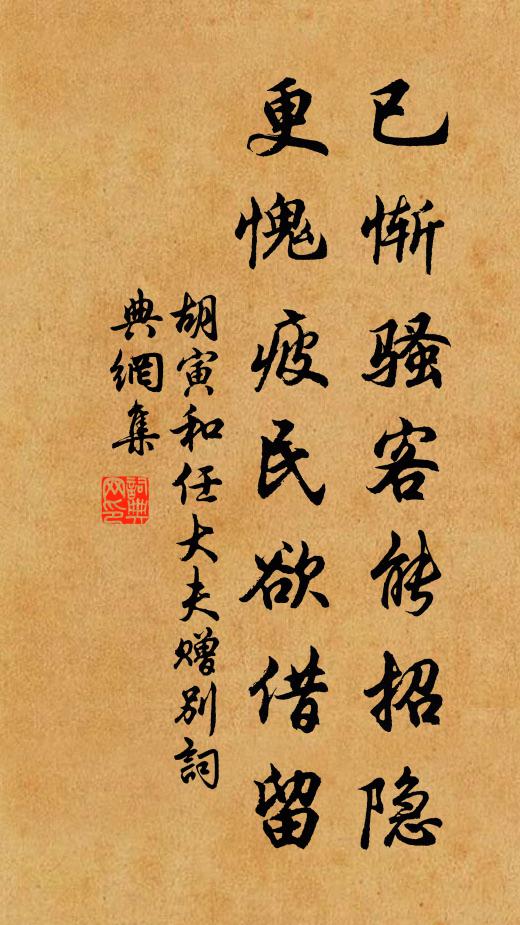 已惭骚客能招隐
更愧疲民欲借留
胡寅和任大夫赠别詞
典網集
詞典
网印